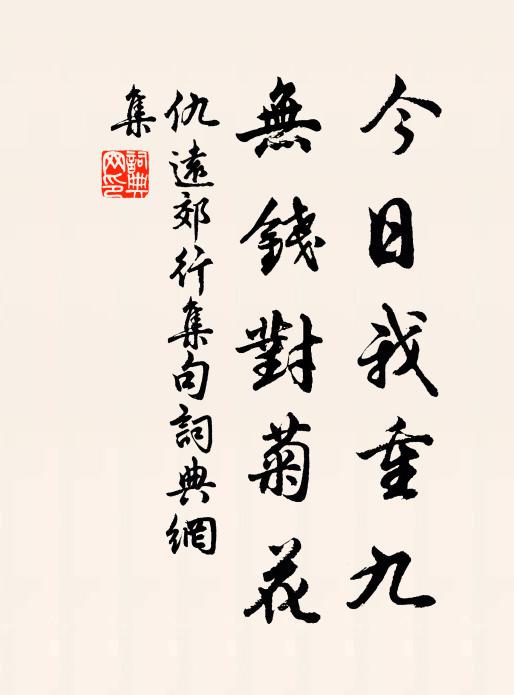 今日我重九
無錢對菊花
仇遠郊行集句詞典網
集
詞典
网印